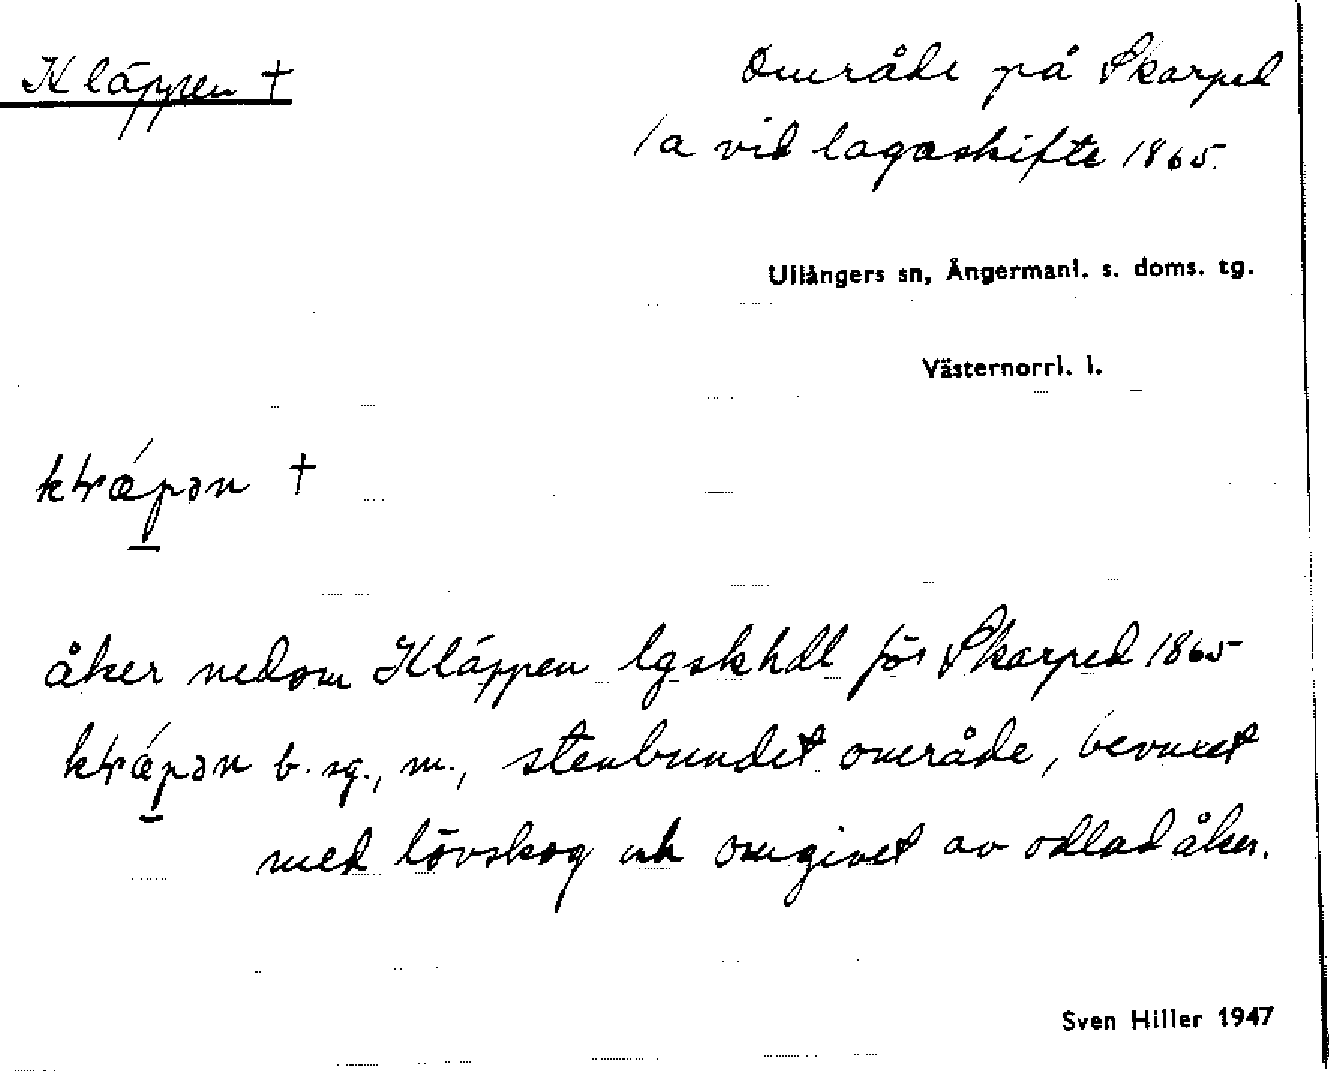 Kläppen †
Område på Skarped
1a vid lagaskifte 1865.
Ullångers sn, Ångermanl. s. doms. tg.
Västernorrl. l.
kɬǽpən †
åker nedom Kläppen lgskhdl för Skarped 1865
kɬǽpən b. sg., m., stenbundet område, bevuxet
med lövskog och omgivet av odlad åker.
Sven Hiller 1947